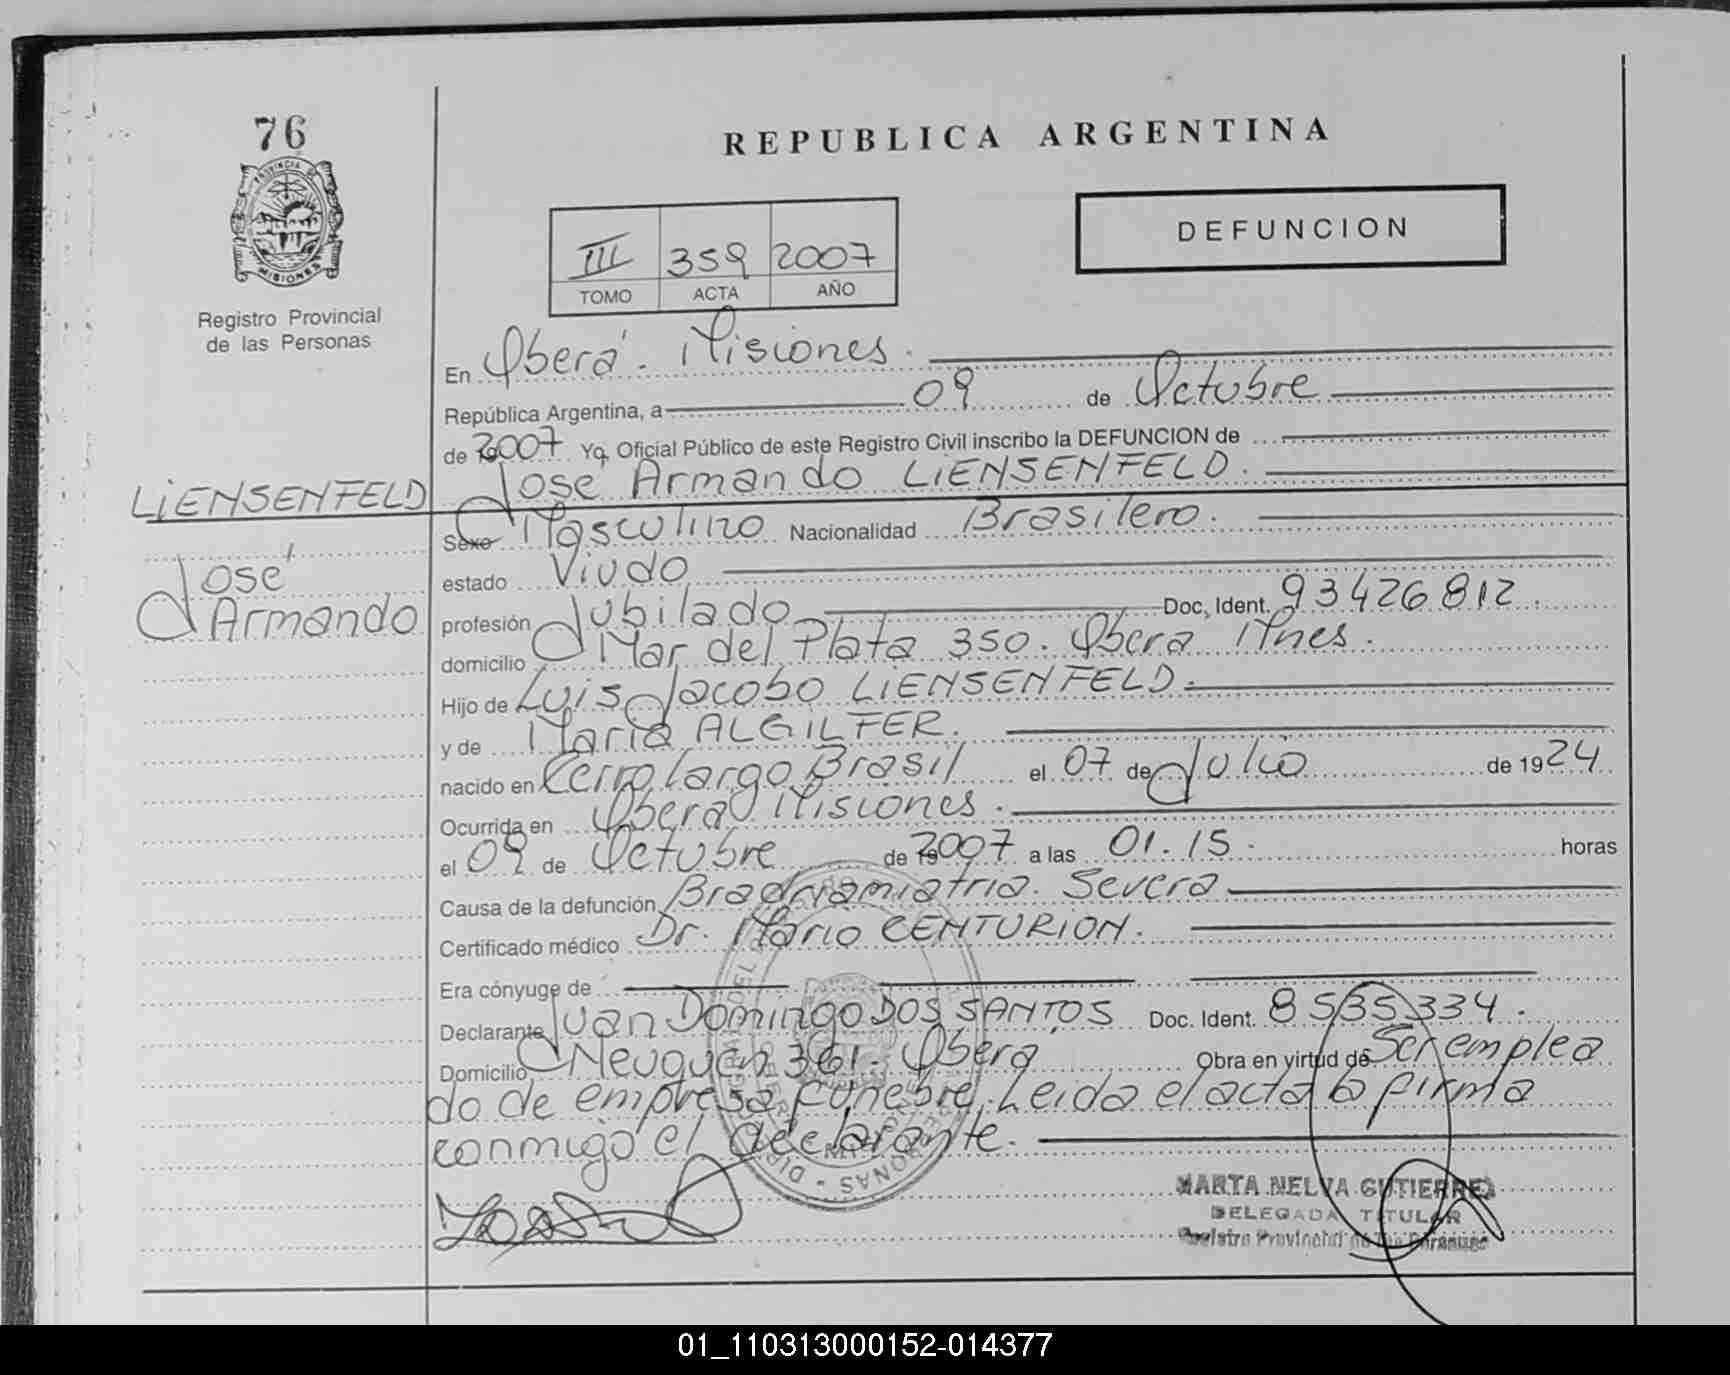 76
PROVINCIA DE
MISIONES
Registro Provincial
de las Personas
REPUBLICA ARGENTINA
DEFUNCION
III 359 2007
TOMO ACTA AÑO
En Oberá - Misiones.
República Argentina, a 09 de Octubre
de 2007 Yo, Oficial Público de este Registro Civil inscribo la DEFUNCION de
José Armando LIENSENFELD.
LIENSENFELD
José
Armando
Sexo Masculino Nacionalidad Brasilero.
estado Viudo
profesión Jubilado Doc, Ident. 93426812.
domicilio Mar del Plata 350. Oberá Mnes.
Hijo de Luis Jacobo LIENSENFELD.
y de María ALGILFER.
nacido en Cerro largo Brasil el 07 de Julio de 1924
Ocurrida en Oberá Misiones.
el 09 de Octubre de 2007 a las 01.15. horas
Causa de la defunción Severa
Certificado médico Dr. Mario CENTURION.
Era cónyuge de
Declarante Juan Domingo DOS SANTOS Doc. Ident. 8535334.
Domicilio Neuquén 361. Oberá Obra en virtud de Ser emplea
do de empresa fúnebre. Leida el acta la firma
conmigo el declarante.
MARTA NELVA GUTIERREZ
DELEGADA TITULAR
Registro Provincial de las Personas
01_110313000152-014377